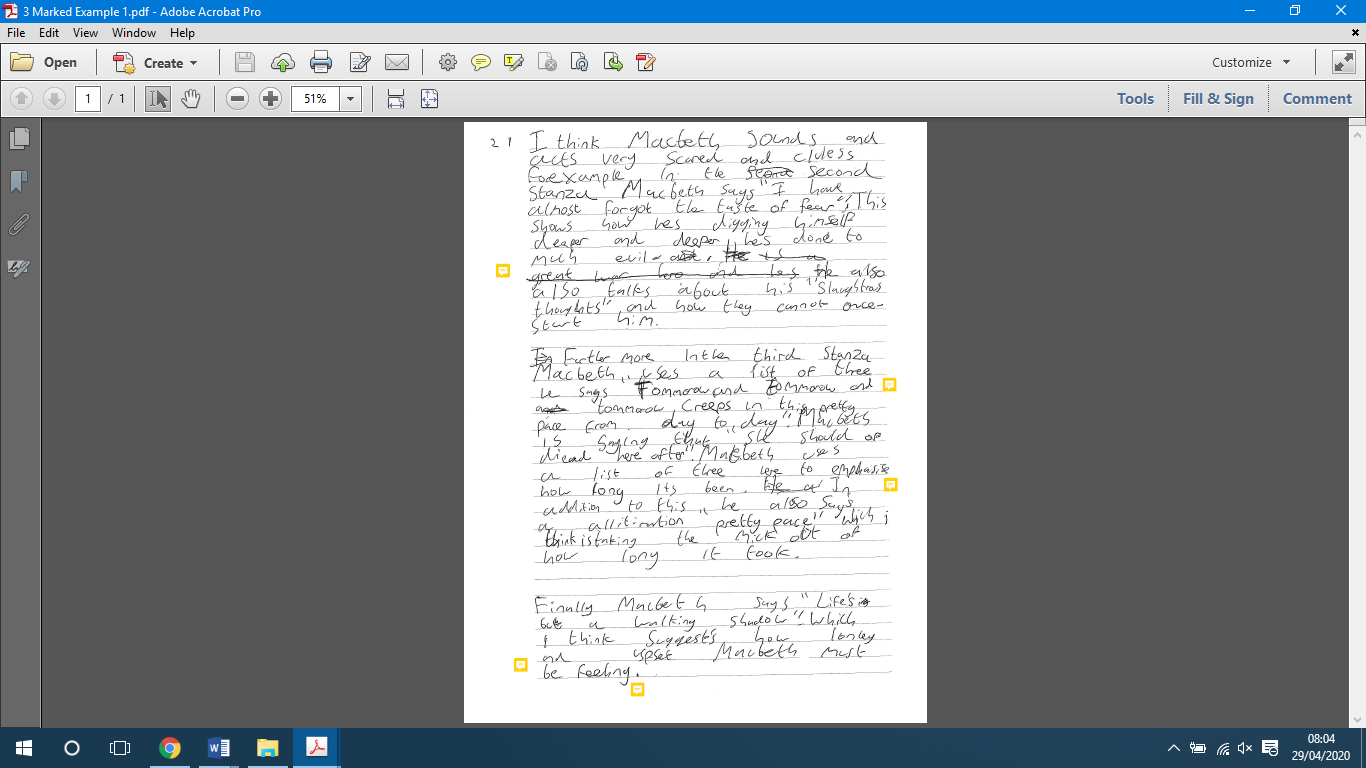 3 Marked Example 1.pdf - Adobe Acrobat Pro
File Edit View Window Help
Open Create Customize
1 / 1 51% Tools Fill & Sign Comment
21 I think Macbeth Sounds and
acts very Scared and cluless
For example In the Second Second
Stanza Macbeth says "I have
almost forgot the taste of fear". This
Shows how hes digging himself
deeper and deeper, hes done to
much evil. He is a
great war hero and has He also
also talks about his "Slaughtras
thoughts" and how they cannot once
Start him.
In Further more In the third Stanza
Macbeth, uses a list of three
he says Tommorow and Tommorow and
and tommorow, Creeps in this pretty
pace from. day to day". Macbeth
is saying that "She should of
diead here after". Macbeth uses
a list of three here to emphasise
how long its been. He a In
addition to this, he also Says
a allitiration "pretty pace" which i
think is taking the mick out of
how long it took.
Finally Macbeth says "Life's
but a walking shadow". Which
I think Suggests how lonley
and upset Macbeth must
be feeling.
08:04
29/04/2020